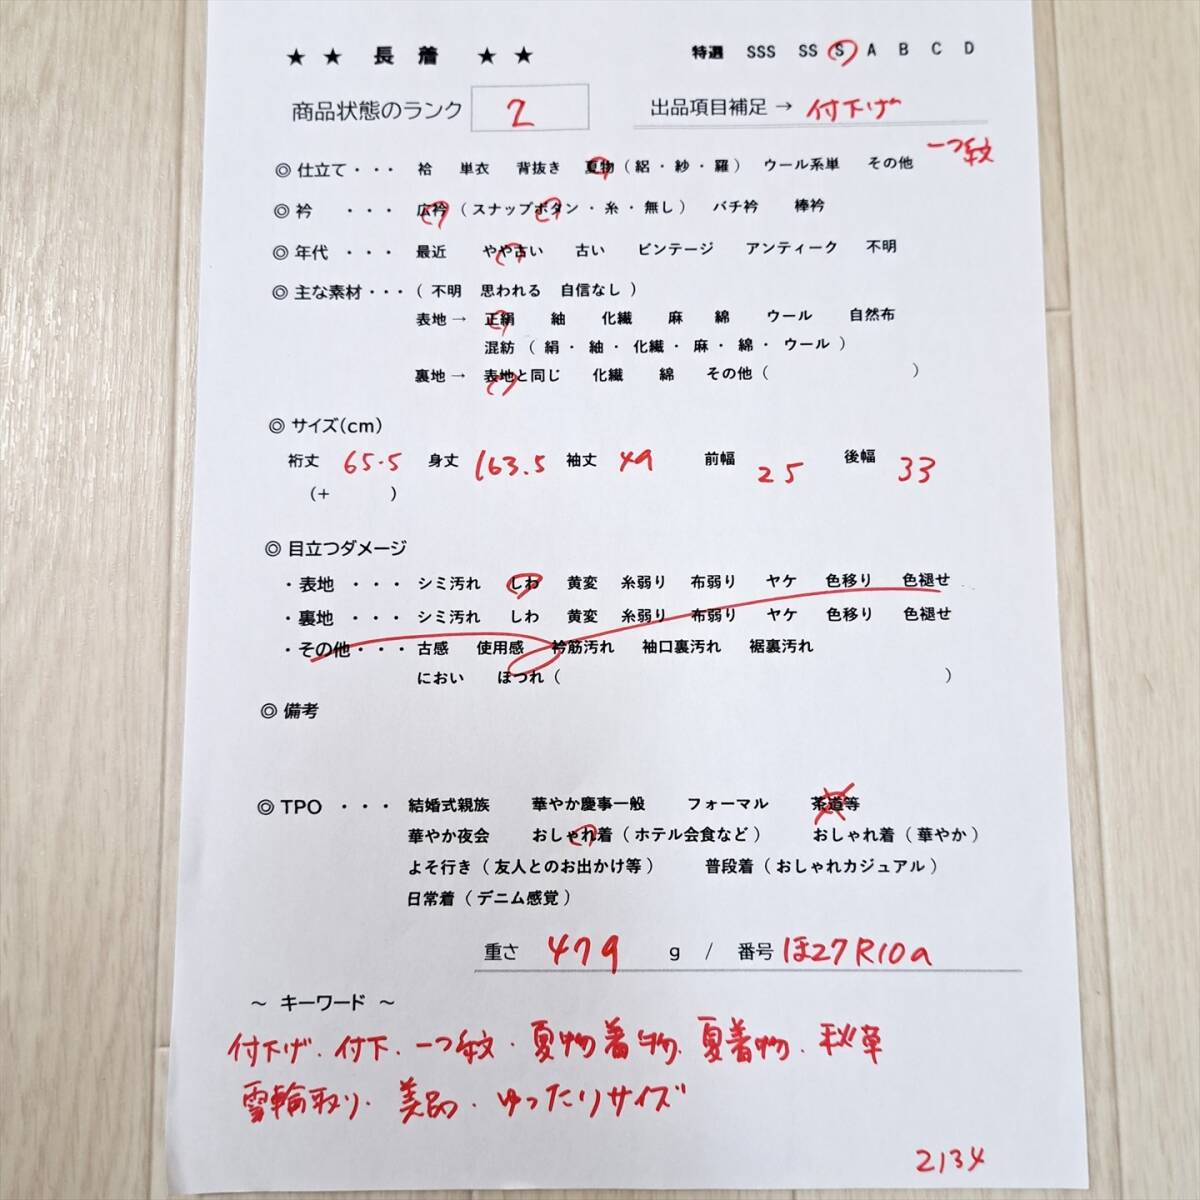 ★ ★ 長 着 ★ ★ 特選 SSS SS S A B C D
商品状態のランク 2 出品項目補足 → 付下げ
一つ紋
◎ 仕立て・・・ 袷 単衣 背抜き 夏物 ( 絽 ・ 紗 ・ 羅 ) ウール系単 その他
◎ 衿 ・・・ 広衿 ( スナップボタン ・ 糸 ・ 無し ) バチ衿 棒衿
◎ 年代 ・・・ 最近 やや古い 古い ビンテージ アンティーク 不明
◎ 主な素材・・・ ( 不明 思われる 自信なし )
表地 → 正絹 紬 化繊 麻 綿 ウール 自然布
混紡 ( 絹 ・ 紬 ・ 化繊 ・ 麻 ・ 綿 ・ ウール )
裏地 → 表地と同じ 化繊 綿 その他 ( )
◎ サイズ(cm)
裄丈 65.5 身丈 163.5 袖丈 49 前幅 25 後幅 33
(+ )
◎ 目立つダメージ
・表地 ・・・ シミ汚れ しわ 黄変 糸弱り 布弱り ヤケ 色移り 色褪せ
・裏地 ・・・ シミ汚れ しわ 黄変 糸弱り 布弱り ヤケ 色移り 色褪せ
・その他・・・ 古感 使用感 衿筋汚れ 袖口裏汚れ 裾裏汚れ
におい ほつれ ( )
◎ 備考
◎ TPO ・・・ 結婚式親族 華やか慶事一般 フォーマル 茶道等
華やか夜会 おしゃれ着 ( ホテル会食など ) おしゃれ着 ( 華やか )
よそ行き ( 友人とのお出かけ等 ) 普段着 ( おしゃれカジュアル )
日常着 ( デニム感覚 )
重さ 479 g / 番号 ほ27R10a
～ キーワード ～
付下げ・付下・一つ紋・夏物着物・夏着物・秋草
雪輪取り・美品・ゆったりサイズ
2134